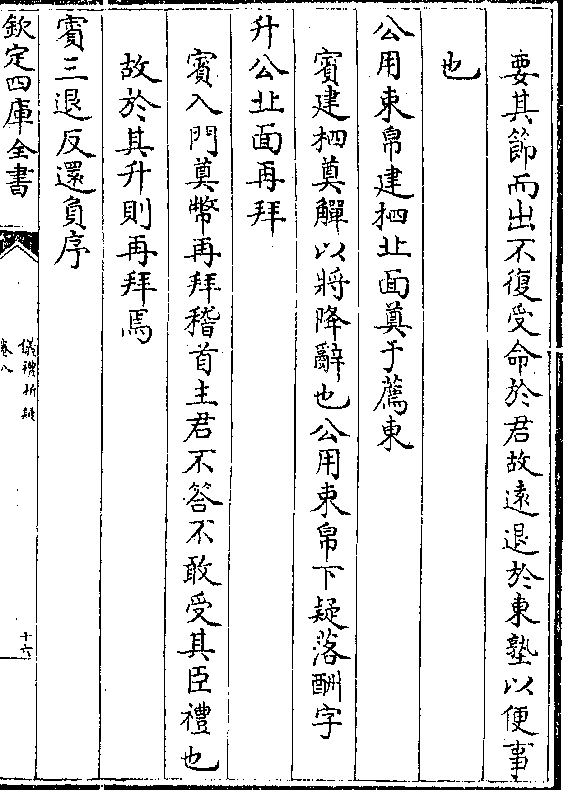 要其節而出不復受命於君故遠退於東塾以便事
也
公用束帛建柶北面奠于薦東
賓建柶奠觶以將降辭也公用束帛下疑落酬字
升公北面再拜
賓入門奠幣再拜稽首主君不答不敢受其臣禮也
故於其升則再拜焉
賓三退反還負序
欽定四庫全書
儀禮析疑
卷八
十六